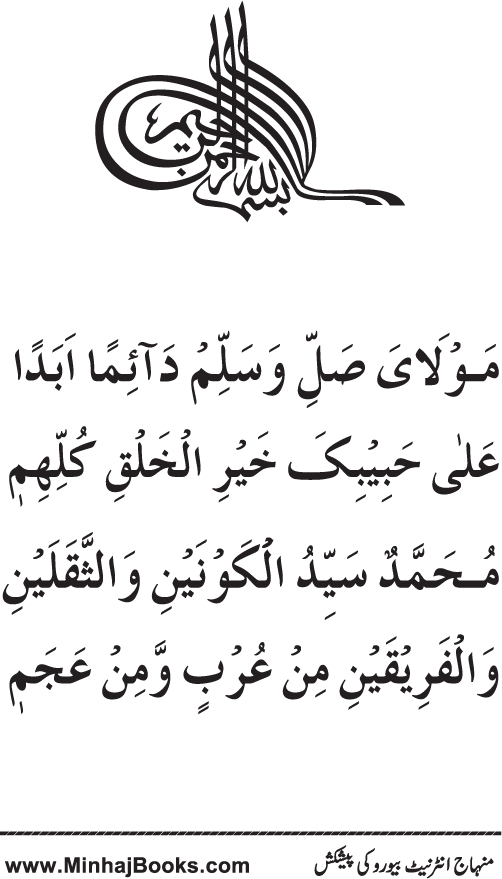 بسم الله الرحمن الرحيم
مَوْلَايَ صَلِّ وَسَلِّمْ دَآئِمًا اَبَدًا
عَلٰی حَبِيْبِکَ خَيْرِ الْخَلْقِ کُلِّهِمٖ
مُحَمَّدٌ سَيِّدُ الْکَوْنَيْنِ وَالثَّقَلَيْنِ
وَالْفَرِيْقَيْنِ مِنْ عُرْبٍ وَّمِنْ عَجَمٖ
منہاج انٹرنیٹ بیورو کی پیشکش
www.MinhajBooks.com